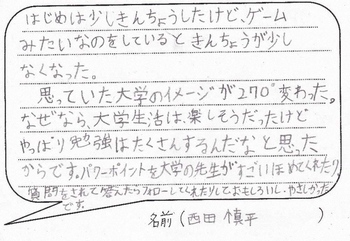 はじめは少しきんちょうしたけど、ゲーム
みたいなのをしているときんちょうが少し
なくなった。
思っていた大学のイメージが270°変わった。
なぜなら、大学生活は、楽しそうだったけど
やっぱり勉強はたくさんするんだなと思った
からです。パワーポイントを大学の先生がすごいほめてくれたり、
質問をされて答えたらフォローしてくれたりしておもしろいし、やさしかった
です。
名前(西田慎平 )